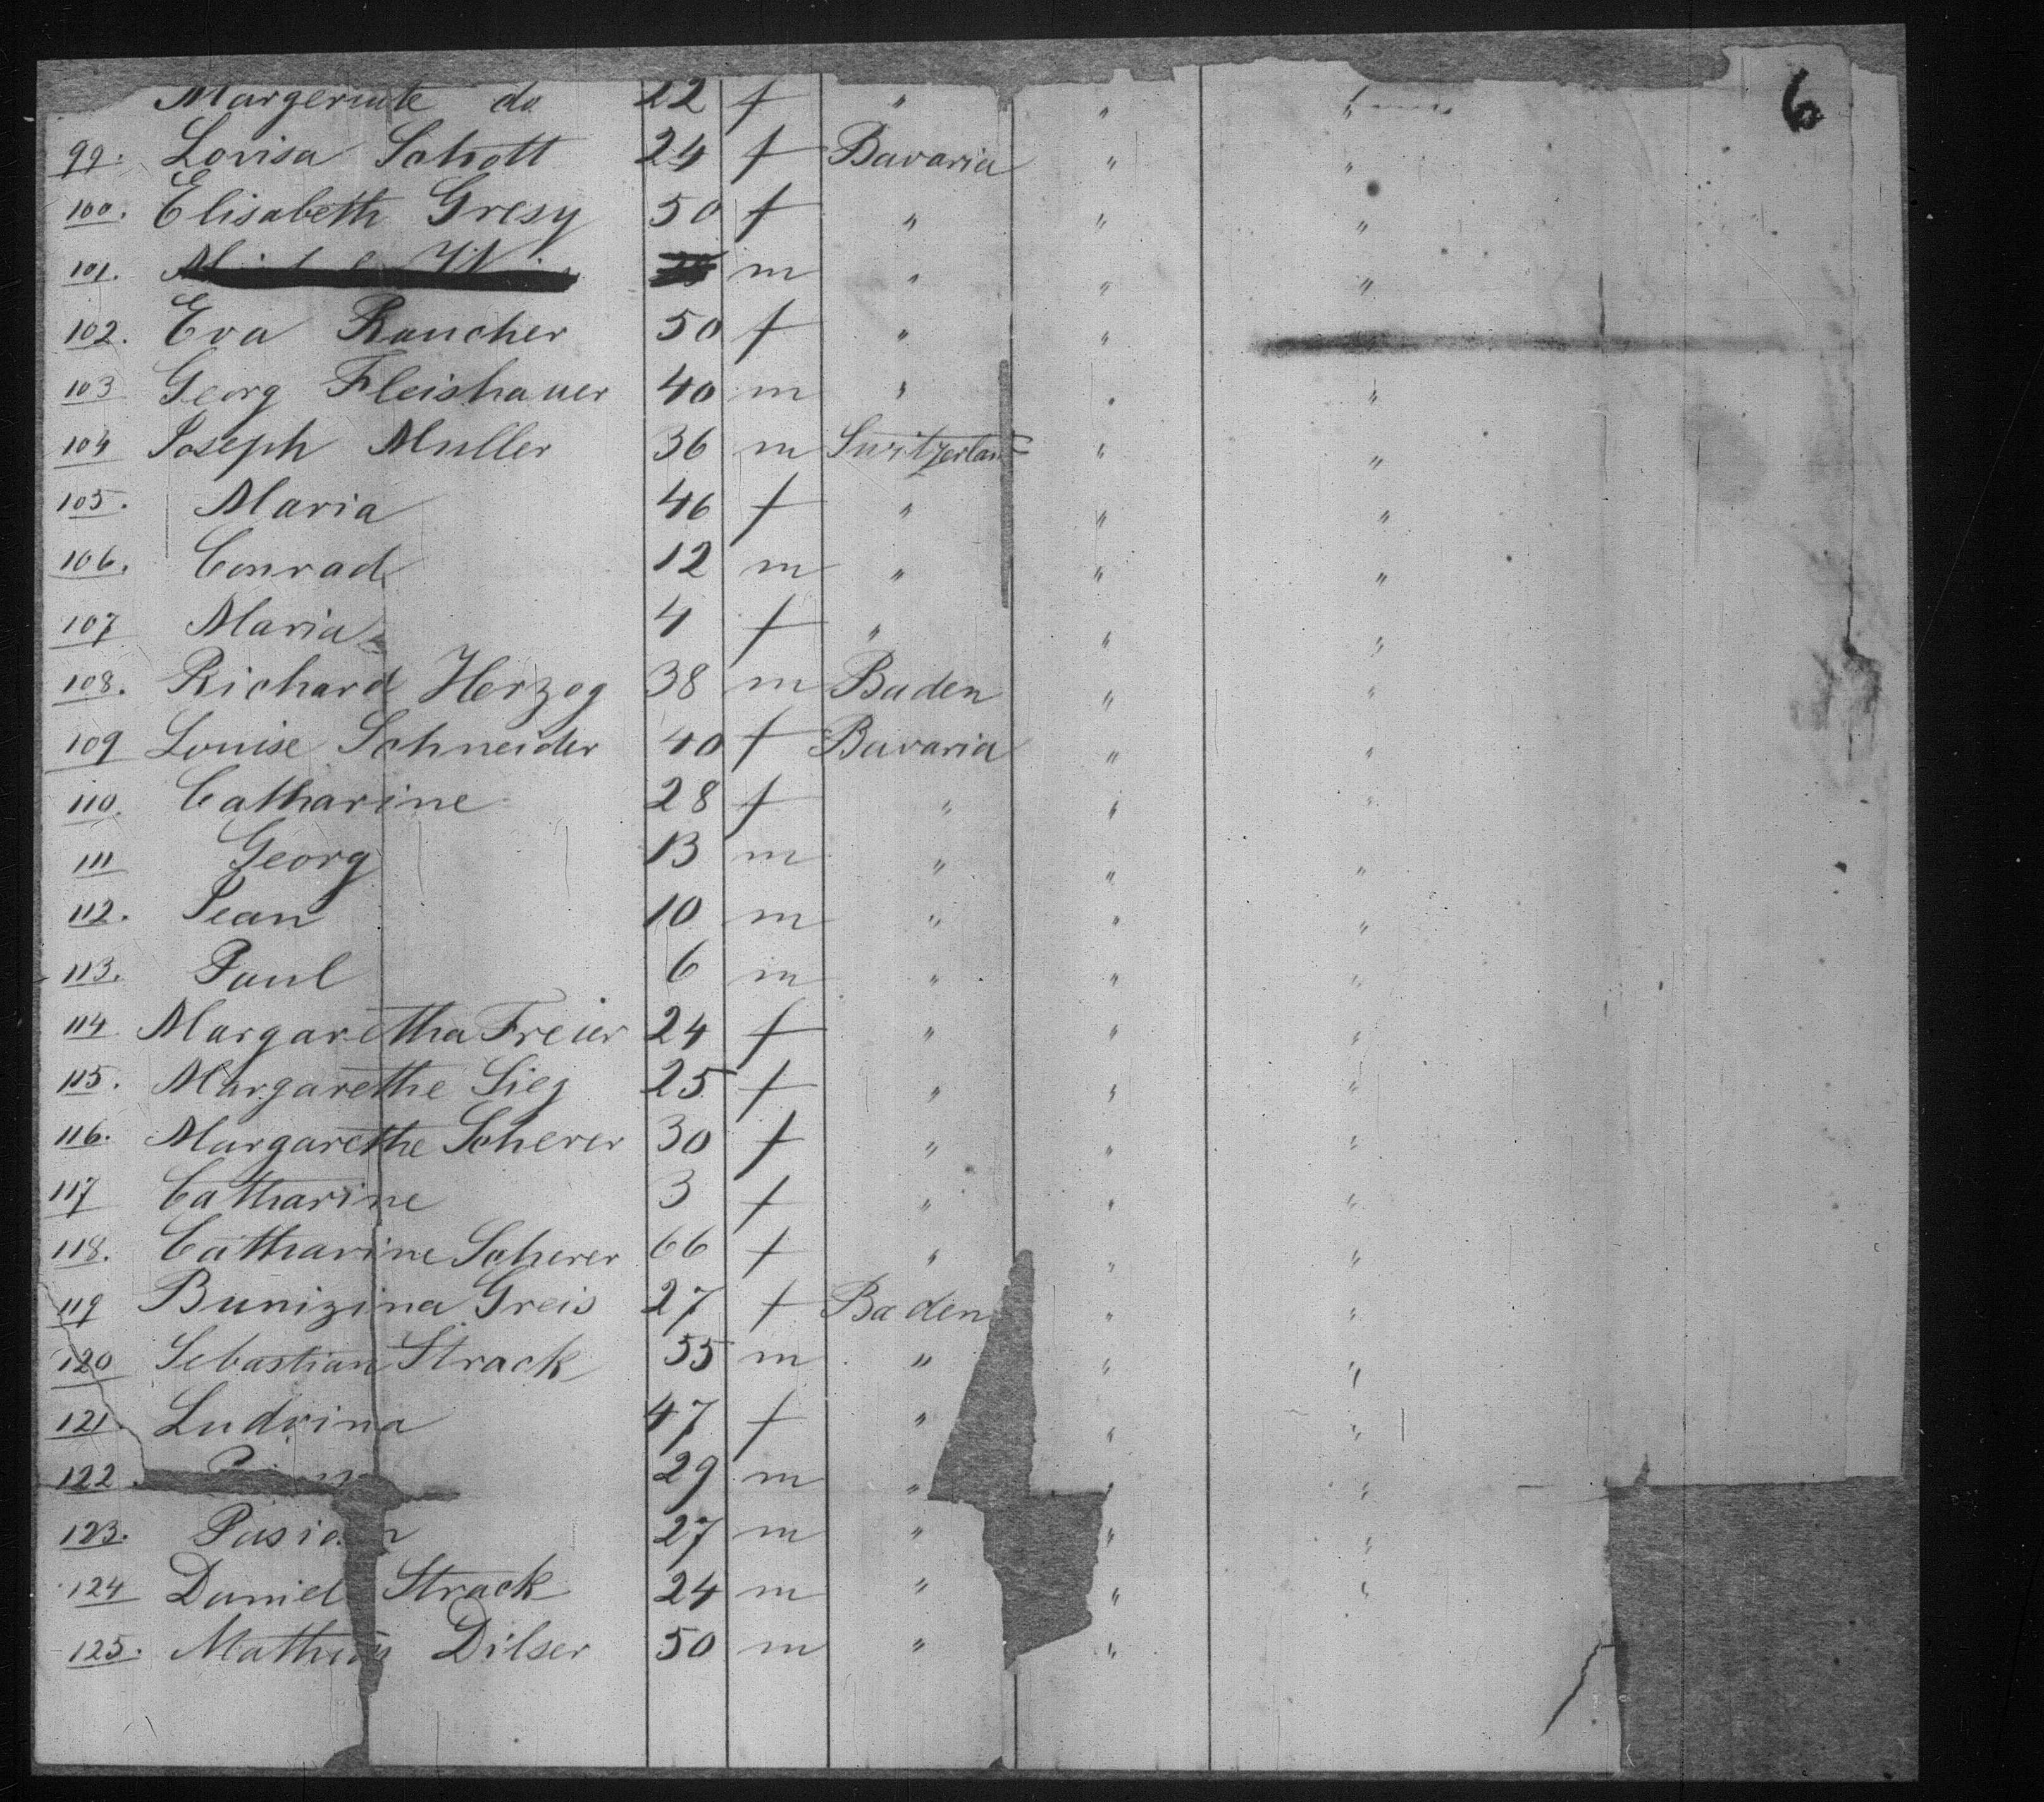 6
do 22 f " " "
99. Lovisa Schott 24 f Bavaria " "
100. Elisabeth Gresy 50 f " " "
101. m " " "
102. Eva Raucher 50 f " " "
103 Georg Fleishauer 40 m " " "
104 Joseph Muller 36 m Switzerland " "
105. Maria 46 f " " "
106. Conrad 12 m " " "
107 Maria 4 f " " "
108. Richard Herzog 38 m Baden " "
109 Louise Schneider 40 f Bavaria " "
110. Catharine 28 f " " "
111 Georg 13 m " " "
112. Jean 10 m " " "
113. Paul 6 m " " "
114 Margaretha Freier 24 f " " "
115. Margarethe Sieg 25 f " " "
116. Margarethe Scherer 30 f " " "
117 Catharine 3 f " " "
118. Catharine Scherer 66 f " " "
119 Bunizina Greis 27 f Baden " "
120 Sebastian Strack 55 m " " "
121. Ludvina 47 f " " "
122. 29 m " " "
123. 27 m " " "
124 Daniel Strack 24 m " " "
125. Dilser 50 m " "